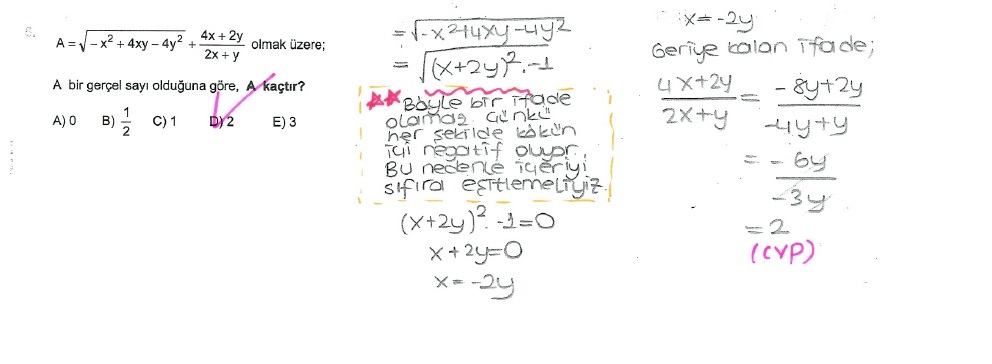 5.
A = √-x² + 4xy - 4y² + 4x + 2y / 2x + y olmak üzere;
A bir gerçel sayı olduğuna göre, A kaçtır?
A) 0 B) 1/2 C) 1 D) 2 E) 3
= √-x²+4xy-4y²
= √(x+2y)².-1
★★ Böyle bir ifade
olamaz. Çünkü
her şekilde kökün
içi negatif oluyor.
Bu nedenle içeriyi
sıfıra eşitlemeliyiz.
(x+2y)².-1=0
x+2y=0
x=-2y
x=-2y
Geriye kalan ifade;
4x+2y / 2x+y = -8y+2y / -4y+y
= -6y / -3y
= 2
(CVP)